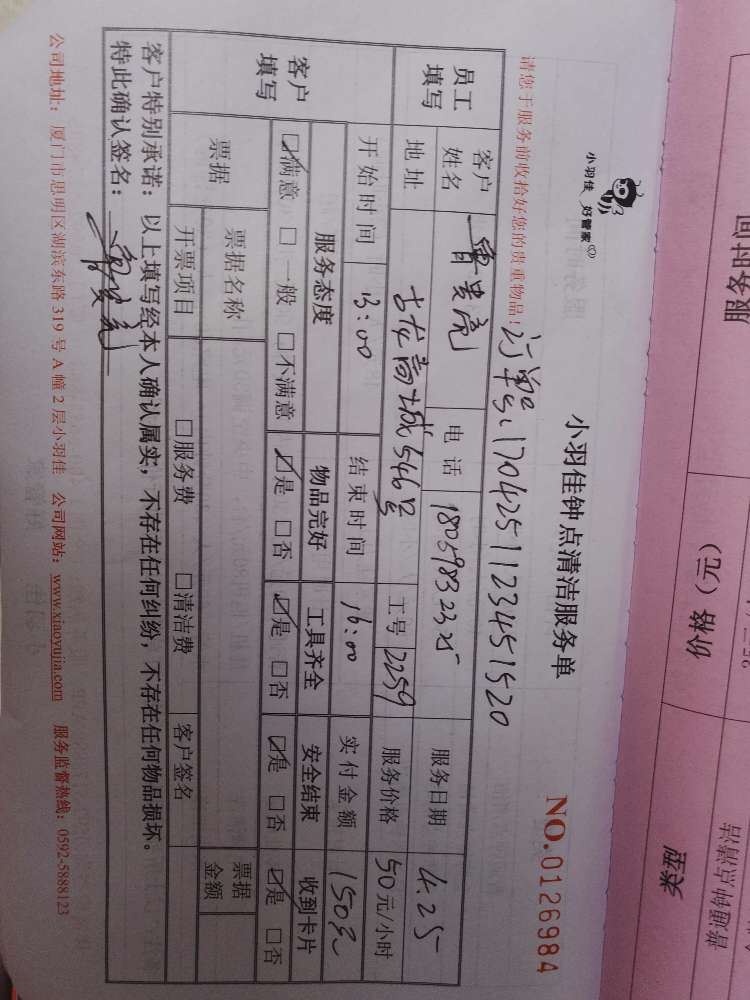 小羽佳 好管家
小羽佳钟点清洁服务单
NO.0126984
请您于服务前收拾好您的贵重物品!
订单号:1704251123451520
员工填写 客户姓名 电话 18059832325 服务日期 4.25
地址 古龙商城546号 工号 2259 服务价格 50元/小时
客户填写 开始时间 13:00 结束时间 16:00 实付金额 150元
服务态度 物品完好 工具齐全 安全结束 收到卡片
☑满意 □一般 □不满意 ☑是 □否 ☑是 □否 ☑是 □否 ☑是 □否
票据 票据名称 票据金额
开票项目 □服务费 □清洁费 客户签名
客户特别承诺:以上填写经本人确认属实,不存在任何纠纷,不存在任何物品损坏。
特此确认签名:
公司地址:厦门市思明区湖滨东路319号A幢2层小羽佳 公司网站:www.xiaoyujia.com 服务监督热线:0592-5888123
服务时间
价格(元)
类型
普通钟点清洁